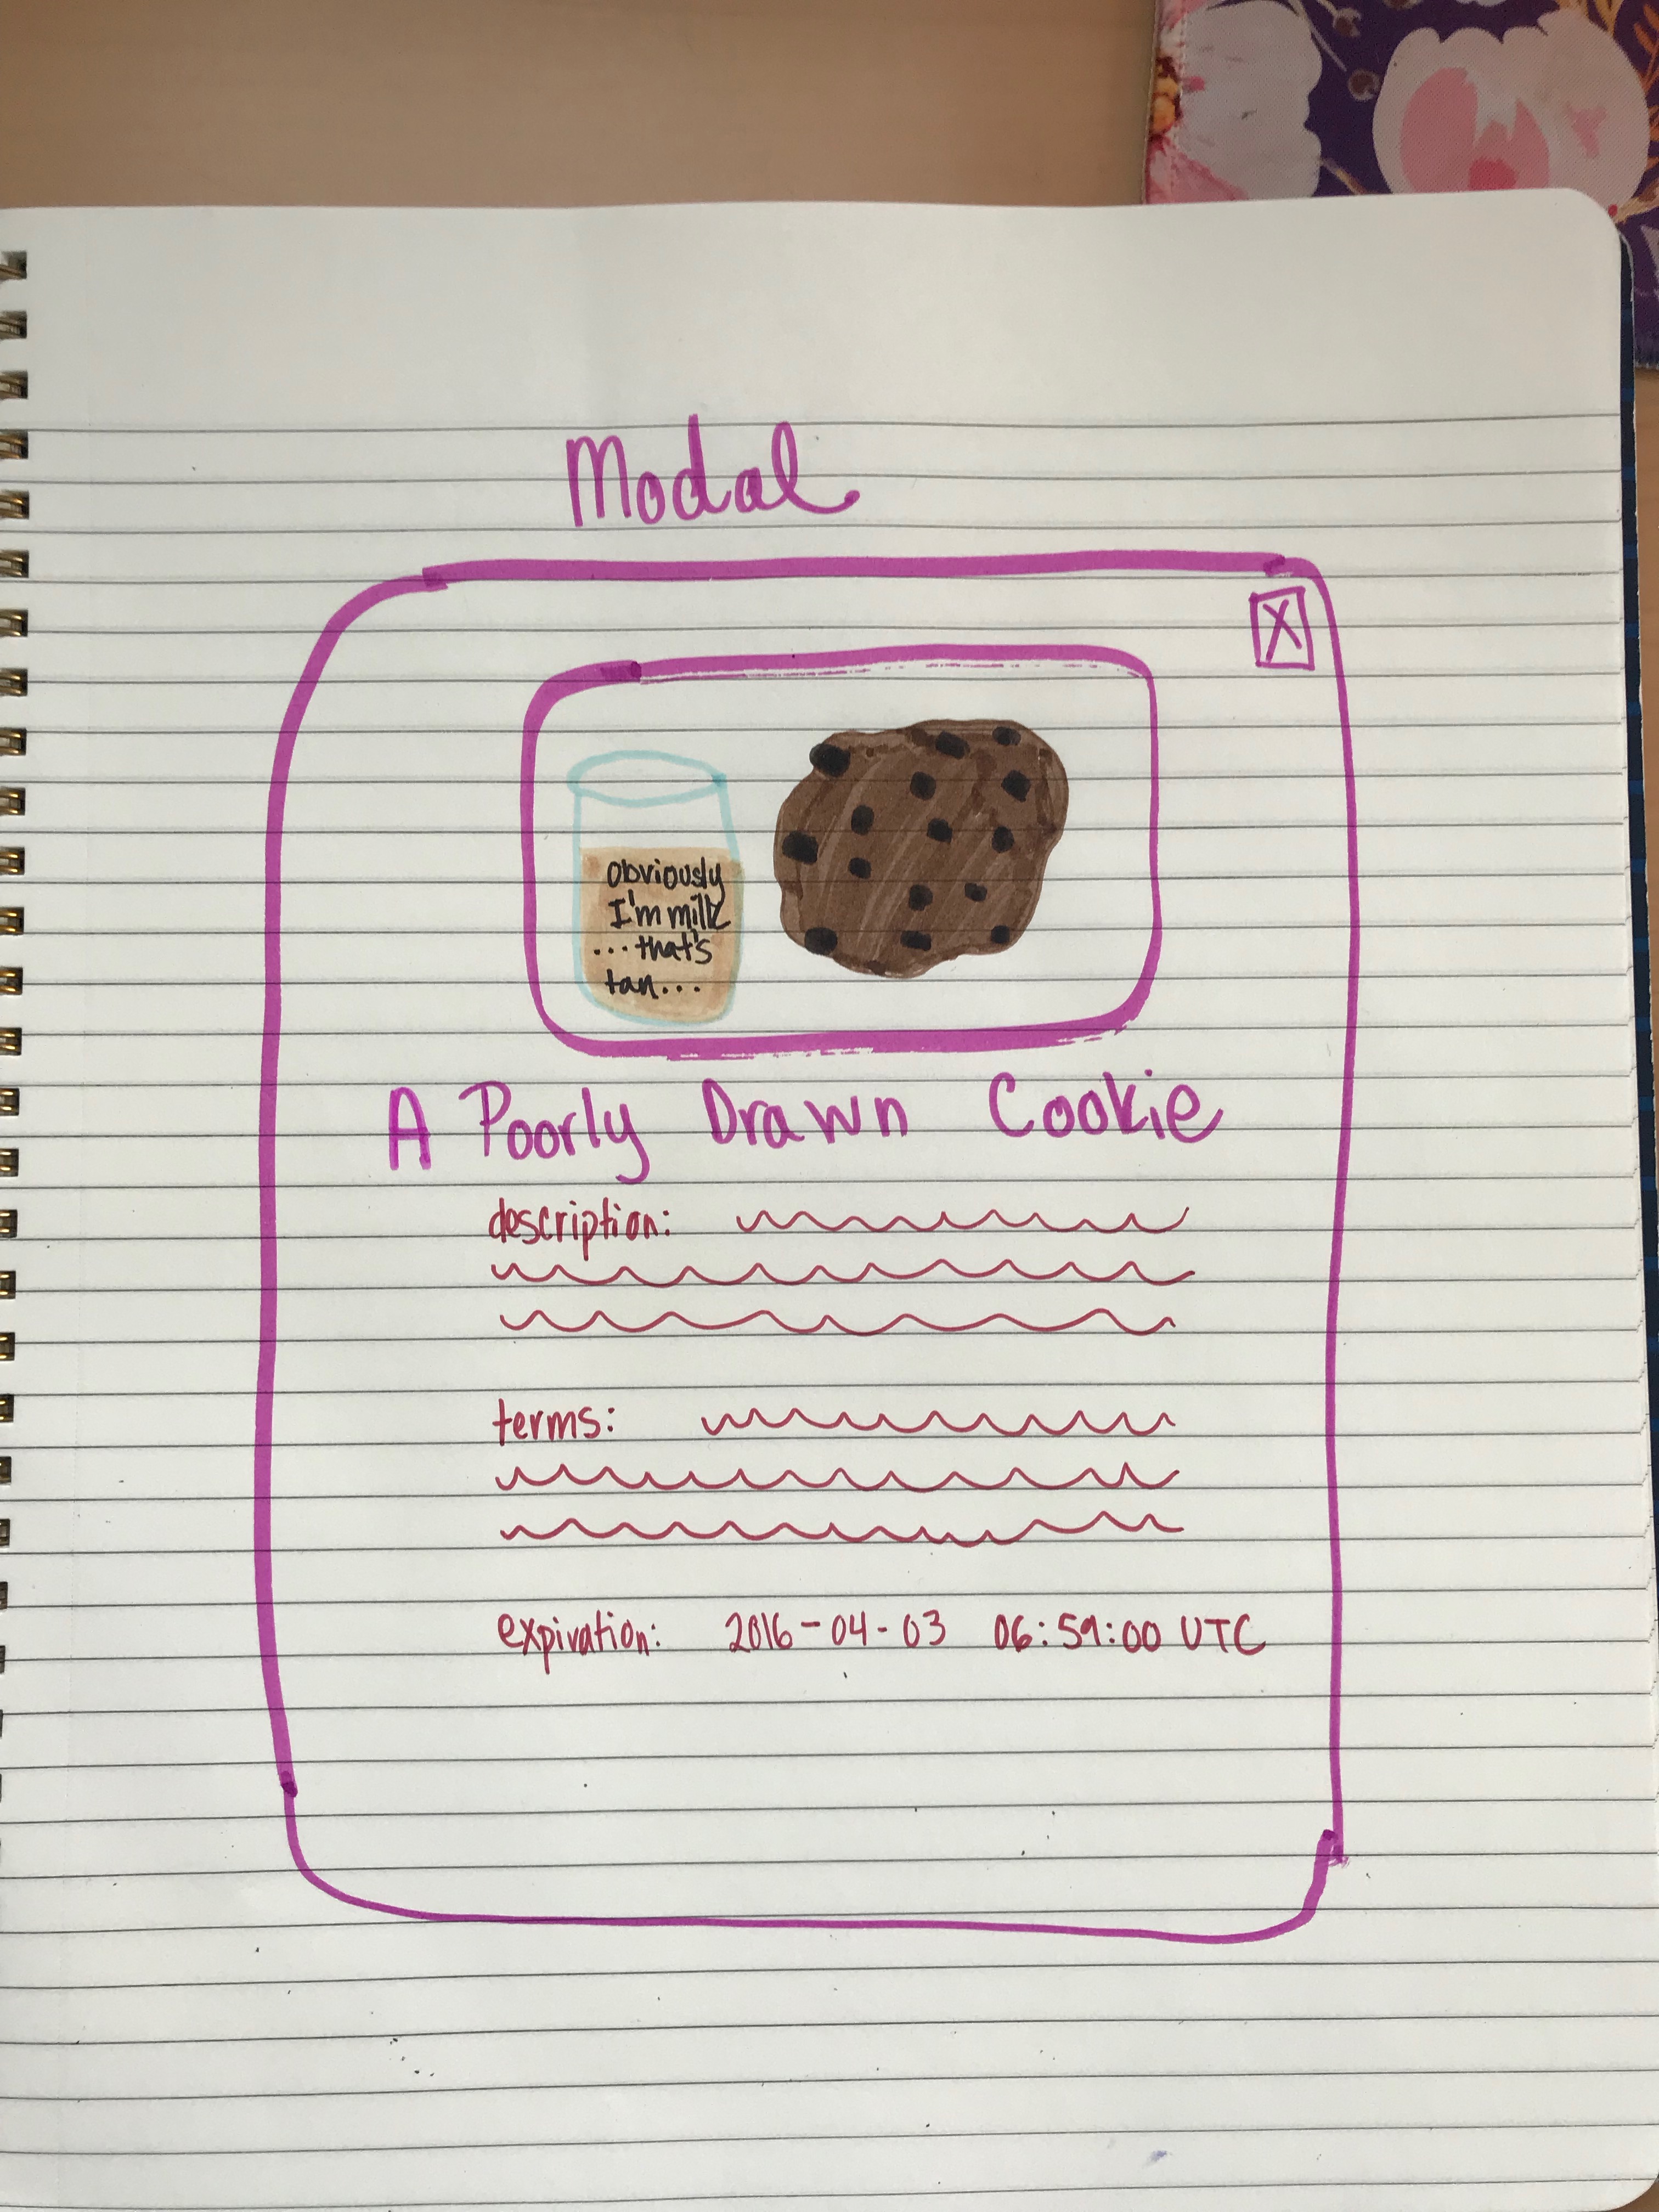 Modal
X
obviously
I'm milk
...that's
tan...
A Poorly Drawn Cookie
description:
terms:
expiration: 2016-04-03 06:59:00 UTC